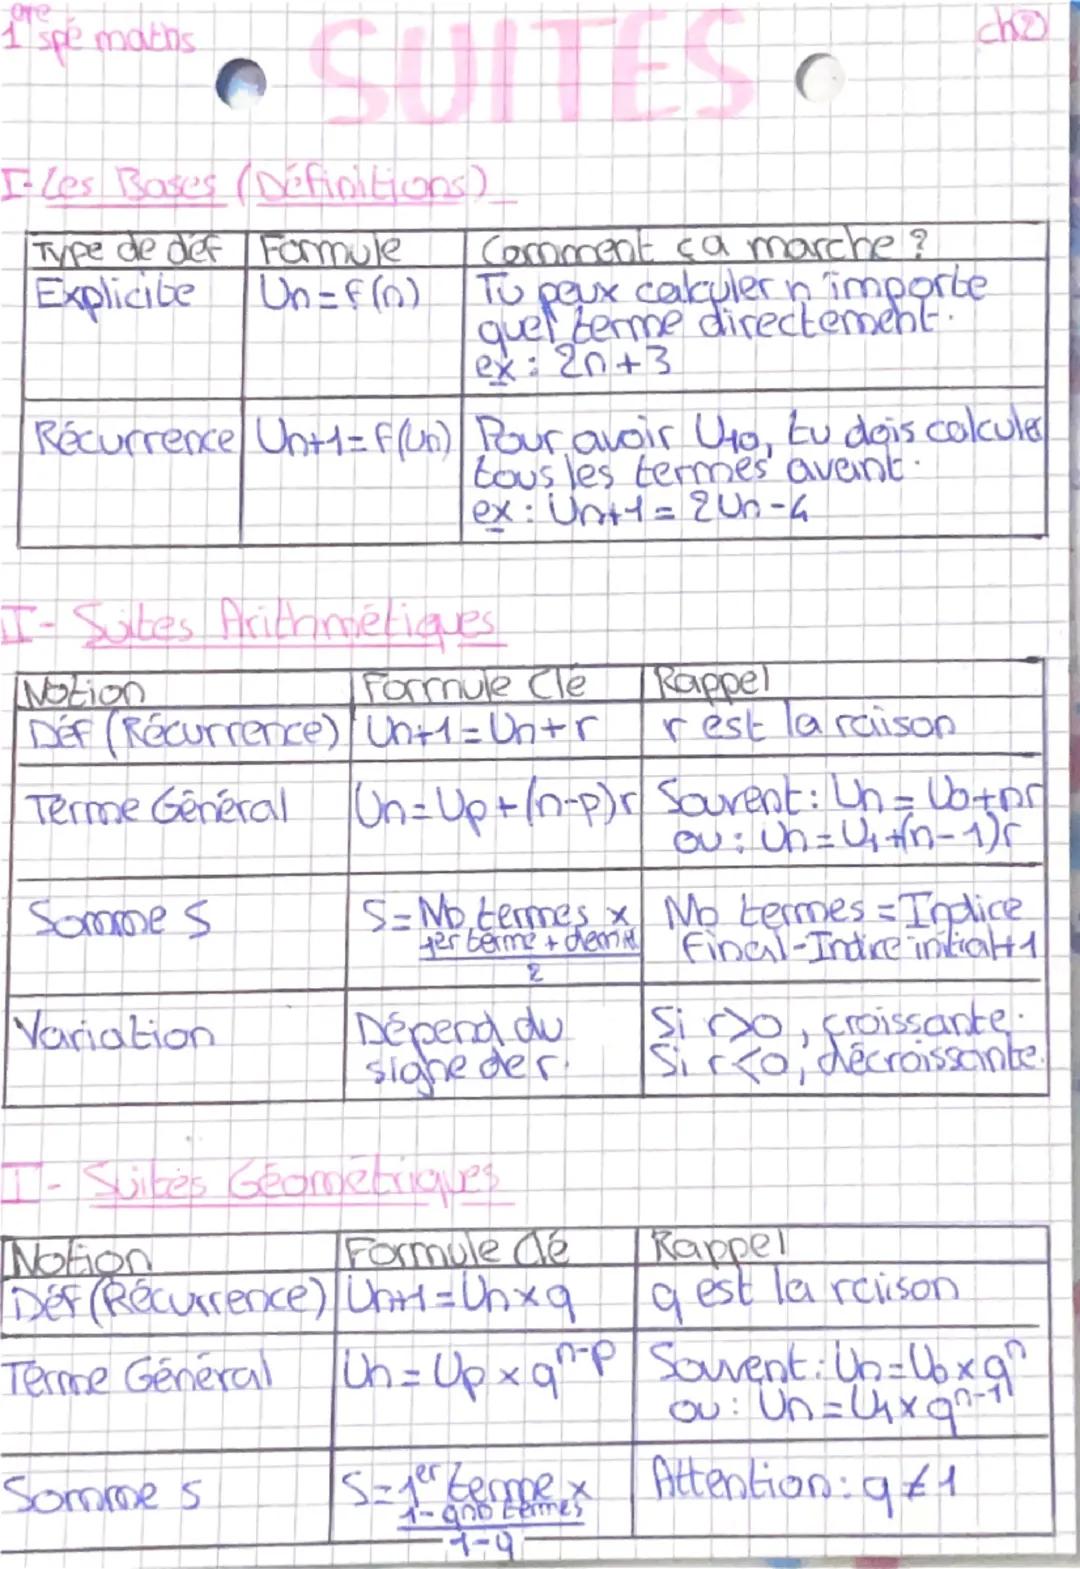 1ère spé maths
SUITES
ch②
I- Les Bases (Définitions)
Type de déf | Formule | Comment ça marche ?
Explicite | Un=f(n) | Tu peux calculer n'importe
quel terme directement.
ex : 2n+3
Récurrence | Un+1=f(Un) | Pour avoir U10, tu dois calculer
tous les termes avant.
ex : Un+1 = 2Un-4
I- Suites Arithmétiques
Notion | Formule Clé | Rappel
Déf (Récurrence) | Un+1=Un+r | r est la raison
Terme Général | Un=Up+(n-p)r | Souvent : Un=U0+nr
ou : Un=U1+(n-1)r
Somme S | S=Nb termes x | Nb termes = Indice
1er terme + dernier | Final-Indice initial+1
2
Variation | Dépend du | Si r>0, croissante.
signe de r. | Si r<0, décroissante.
I- Suites Géométriques
Notion | Formule Clé | Rappel
Déf (Récurrence) | Un+1=Un×q | q est la raison
Terme Général | Un=Up×q^n-p | Souvent : Un=U0×q^n
ou : Un=U1×q^n-1
Somme s | S=1er terme x | Attention : q≠1
1-q^nb termes
1-q